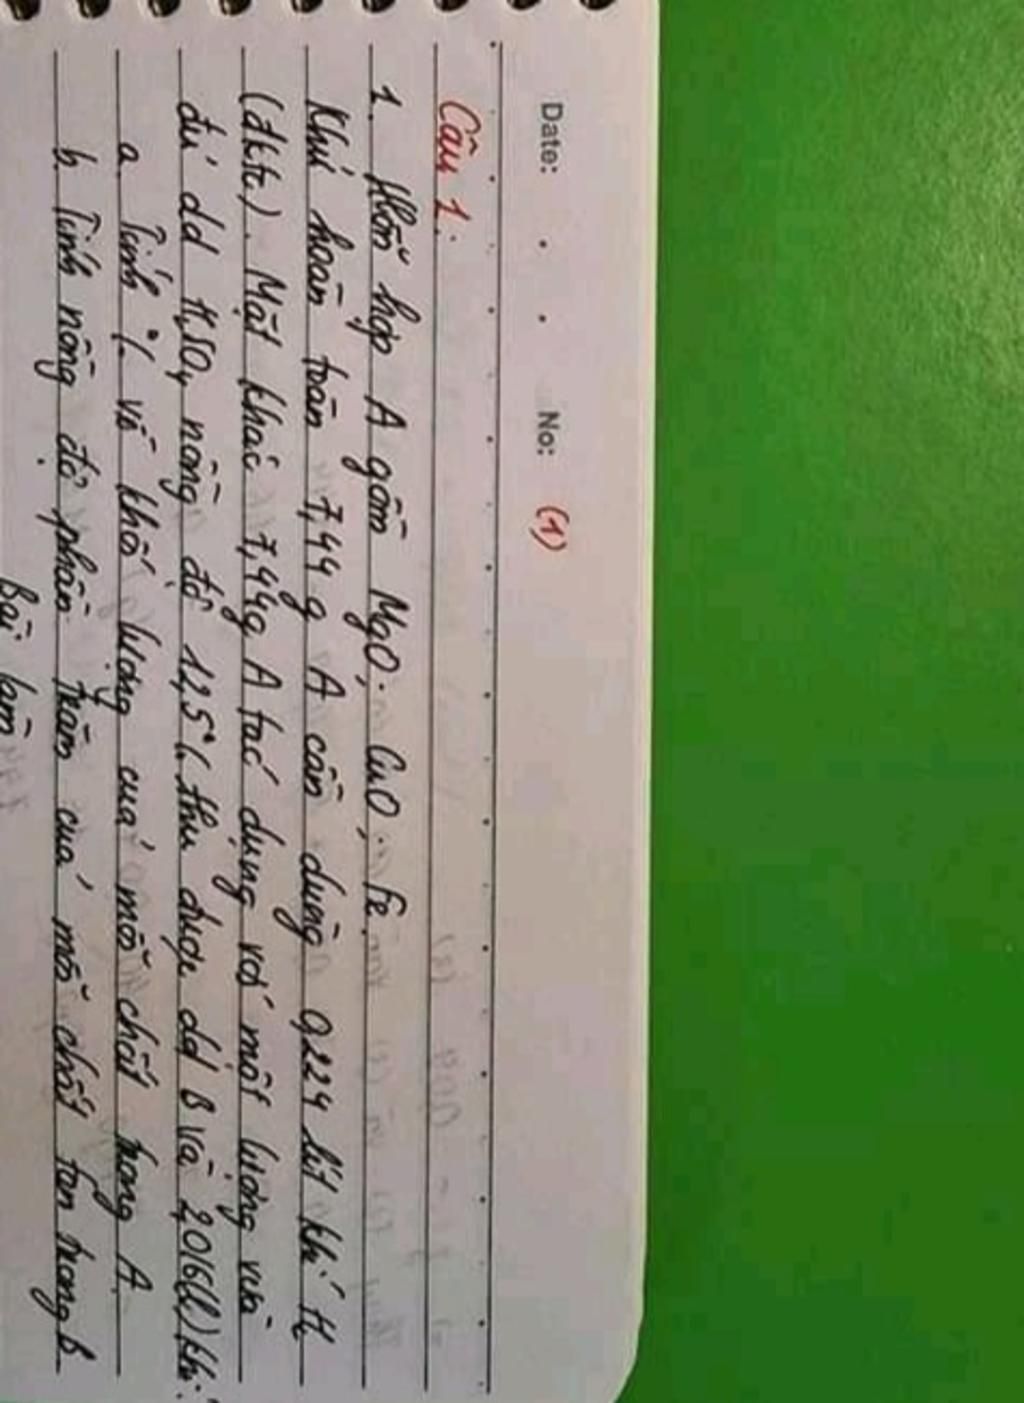 Date: . . No: (1)
Câu 1:
1. Hỗn hợp A gồm MgO, CuO, Fe.
Khử hoàn toàn 7,44 g A cần dùng 0,224 lít khí H₂
(đktc). Mặt khác 7,44g A tác dụng với một lượng vừa
đủ dd H₂SO₄ nồng độ 12,5% thu được dd B và 2,016(l) khí.
a. Tính % về khối lượng của mỗi chất trong A.
b. Tính nồng độ phần trăm của mỗi chất tan trong B
Bài làm